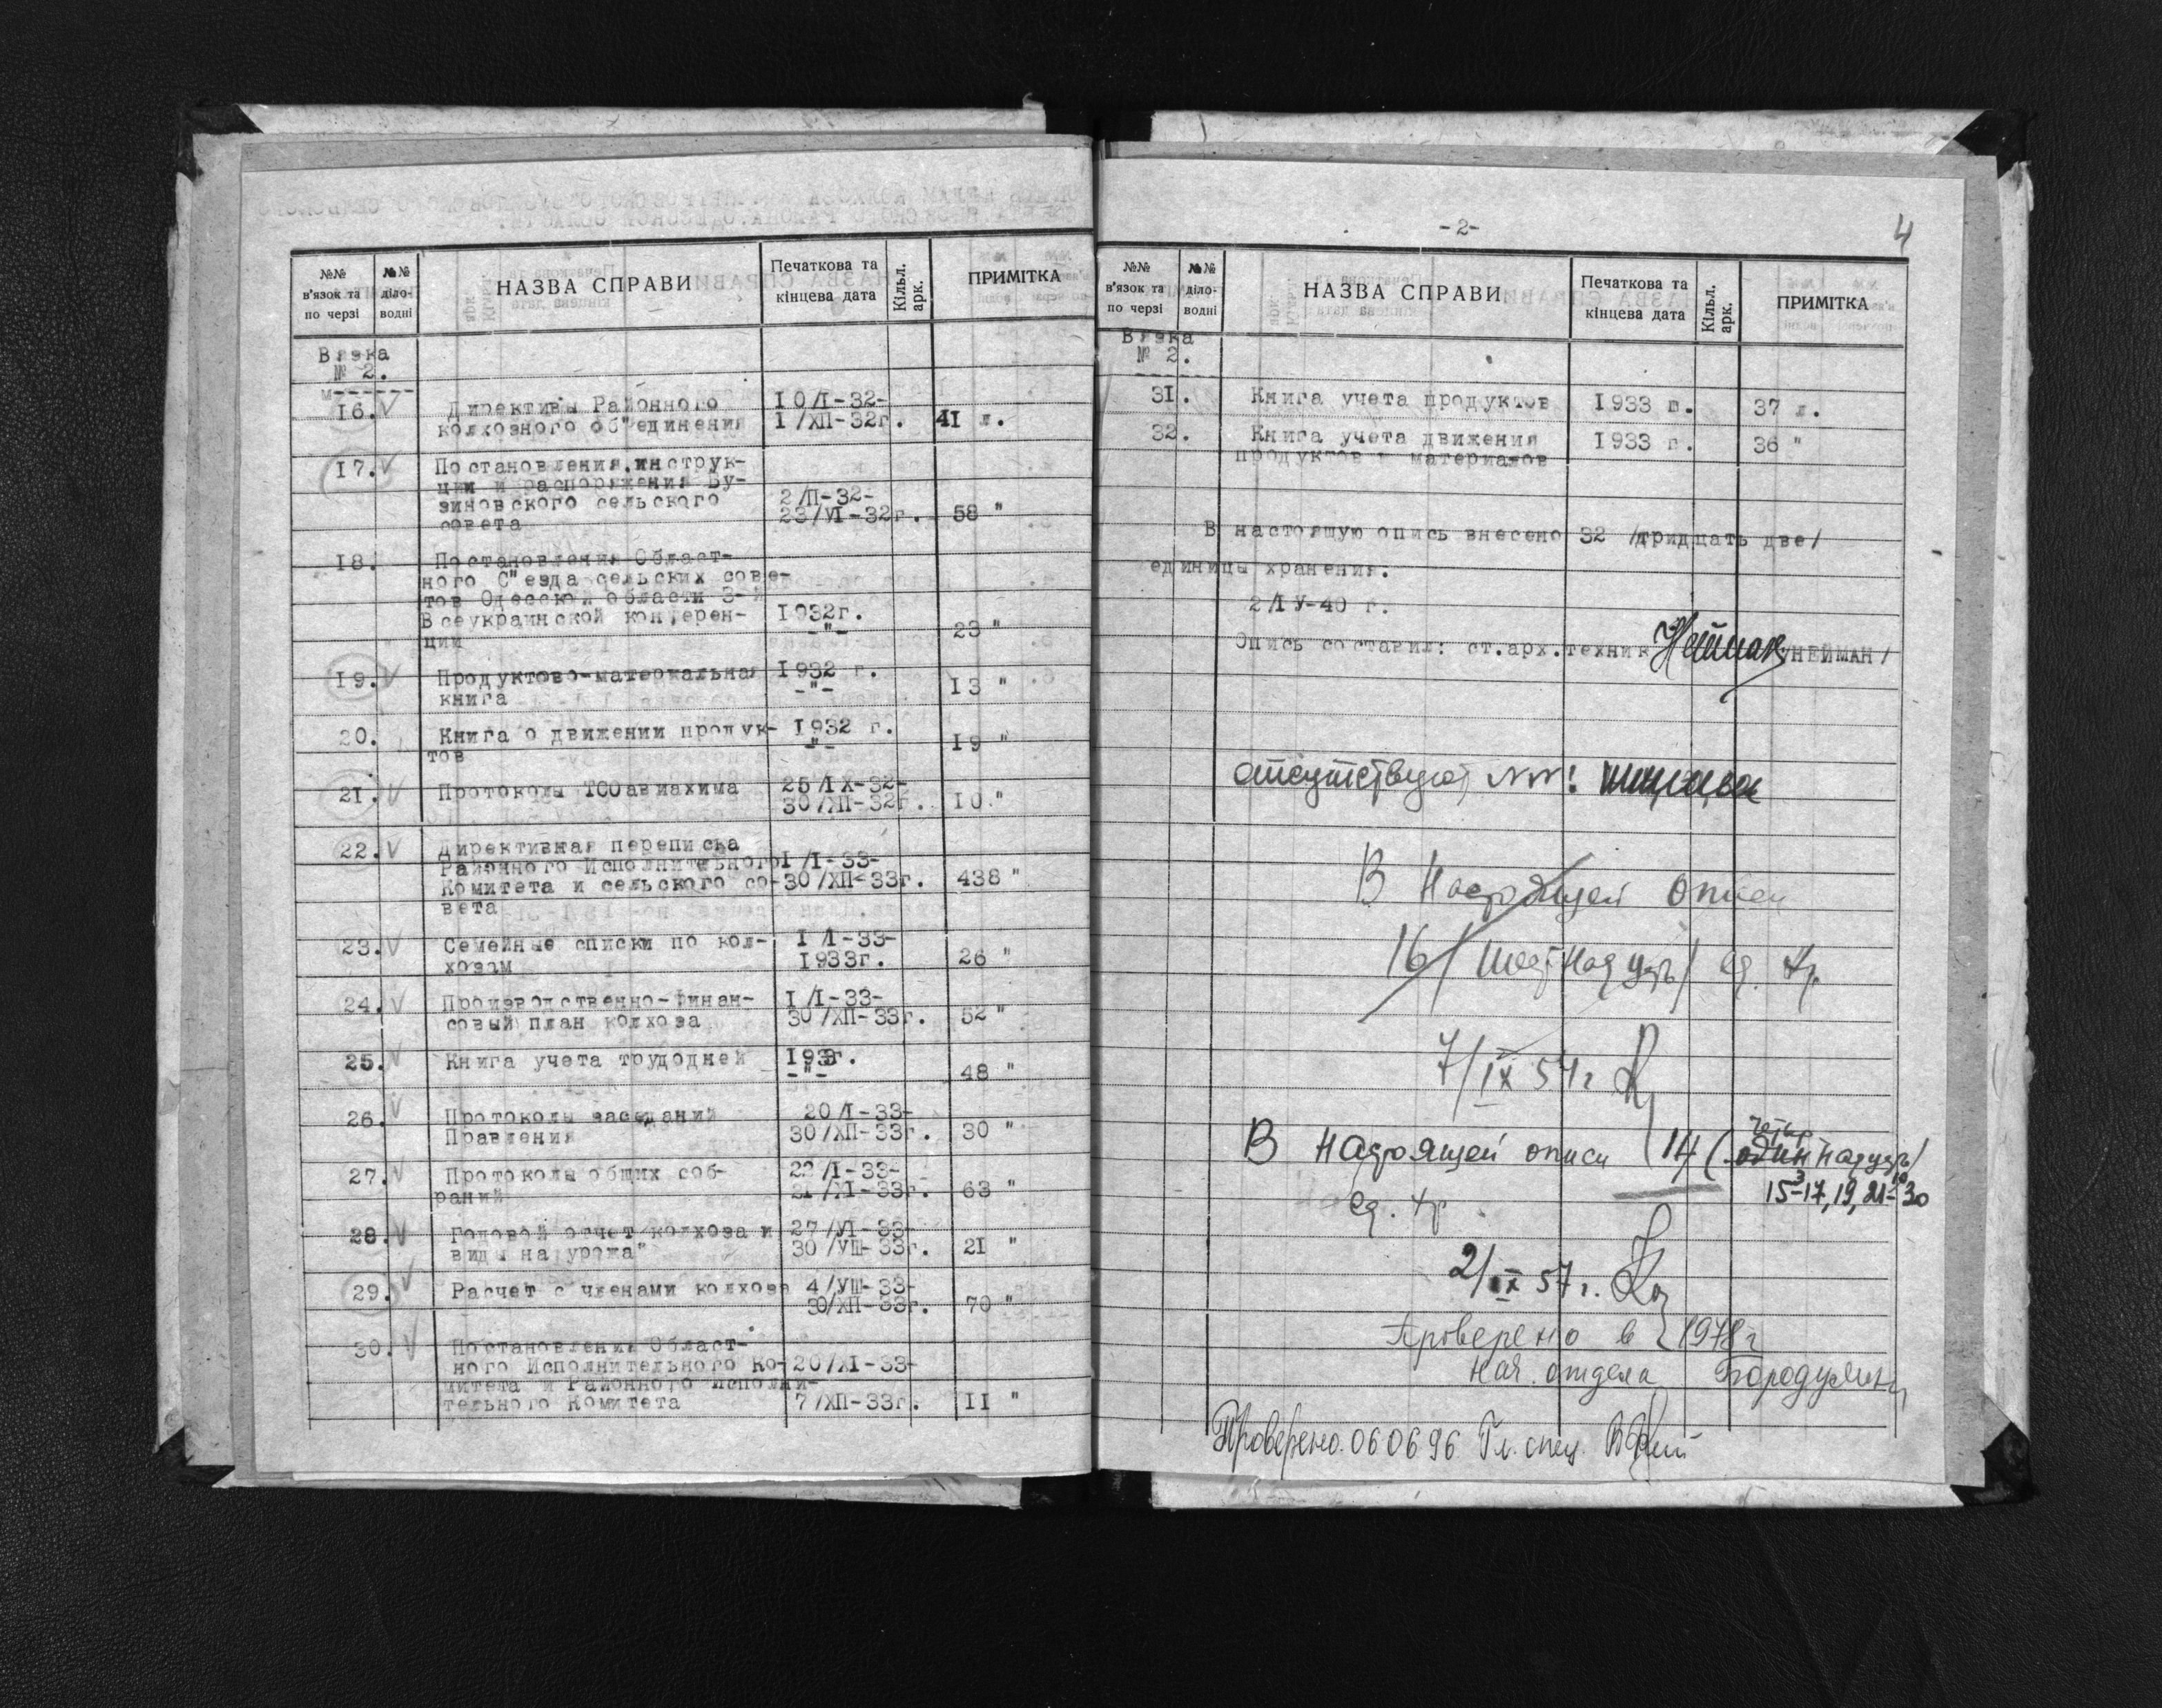 №№
в'язок та
по черзі
№№
діло-
водні
НАЗВА СПРАВИ
Печаткова та
кінцева дата
Кільк.
арк.
ПРИМІТКА
Вязка
№ 2.
16. V Директивы Районного 10/I-32-
колхозного об"единения 1/ХП-32г. 41 л.
17. V Постановления, инструк-
ции и распоряжения Бу-
зиновского сельского 2/П-32-
совета 23/УI-32г. 58 "
18. Постановления Област-
ного С"езда сельских сове-
тов Одесской области 3-й
Всеукраинской конферен- 1932г.
ции -"- 23 "
19. V Продуктово-материальная 1932 г.
книга -"- 13 "
20. Книга о движении продук- 1932 г.
тов -"- 19 "
21. V Протоколы ТСОавиахима 25/IX-32-
30/ХП-32г. 10 "
22. V Директивная переписка
Районного Исполнительного 1/I-33-
Комитета и сельского со- 30/ХП-33г. 438 "
вета
23. V Семейные списки по кол- 1/I-33-
хозам 1933г. 26 "
24. V Производственно-финан- 1/I-33-
совый план колхоза 30/ХП-33г. 52 "
25. V Книга учета трудодней 1933г.
-"- 48 "
26. V Протоколы заседаний 20/I-33-
Правления 30/ХП-33г. 30 "
27. V Протоколы общих соб- 22/I-33-
раний 21/XI-33г. 63 "
28. V Годовой отчет колхоза и 27/УI-33-
виды на урожа" 30/УШ-33г. 21 "
29. V Расчет с членами колхоза 4/УШ-33-
30/ХП-33г. 70 "
30. V Постановления Област-
ного Исполнительного Ко- 20/XI-33-
митета и Районного Исполни-
тельного Комитета 7/ХП-33г. 11 "
-2-
4
№№
в'язок та
по черзі
№№
діло-
водні
НАЗВА СПРАВИ
Печаткова та
кінцева дата
Кільк.
арк.
ПРИМІТКА
Вязка
№ 2.
31. Книга учета продуктов 1933 г. 37 л.
32. Книга учета движения 1933 г. 36 "
продуктов и материалов
В настоящую опись внесено 32 /тридцать две/
единицы хранения.
2/IУ-40 г.
Опись составил: ст.арх.техник Нейман /НЕЙМАН/
отсутствуют №№:
В настоящей описи
16/шестнадцать/ ед. хр.
7/IX 54г
В настоящей описи 14 (четыр один надцать/
15-17, 19, 21-30
ед. хр
2/IX 57г.
Проверено в 1978г
Нач. отдела
Проверено 060696 Гл. спец.